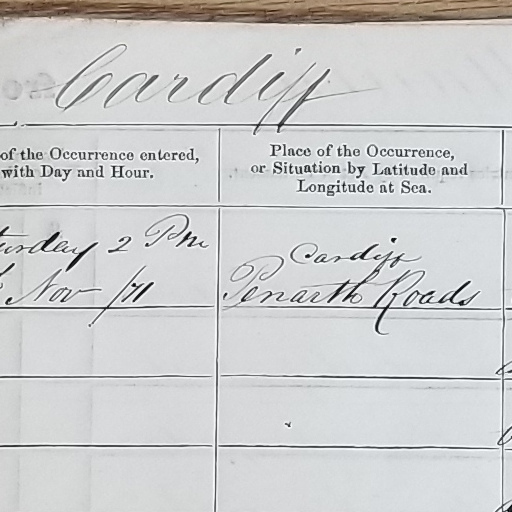 Cardiff
of the Occurrence entered,
with Day and Hour.
Place of the Occurrence,
or Situation by Latitude and
Longitude at Sea.
turday 2 Pm
Nov /71
Cardiff
Penarth Roads